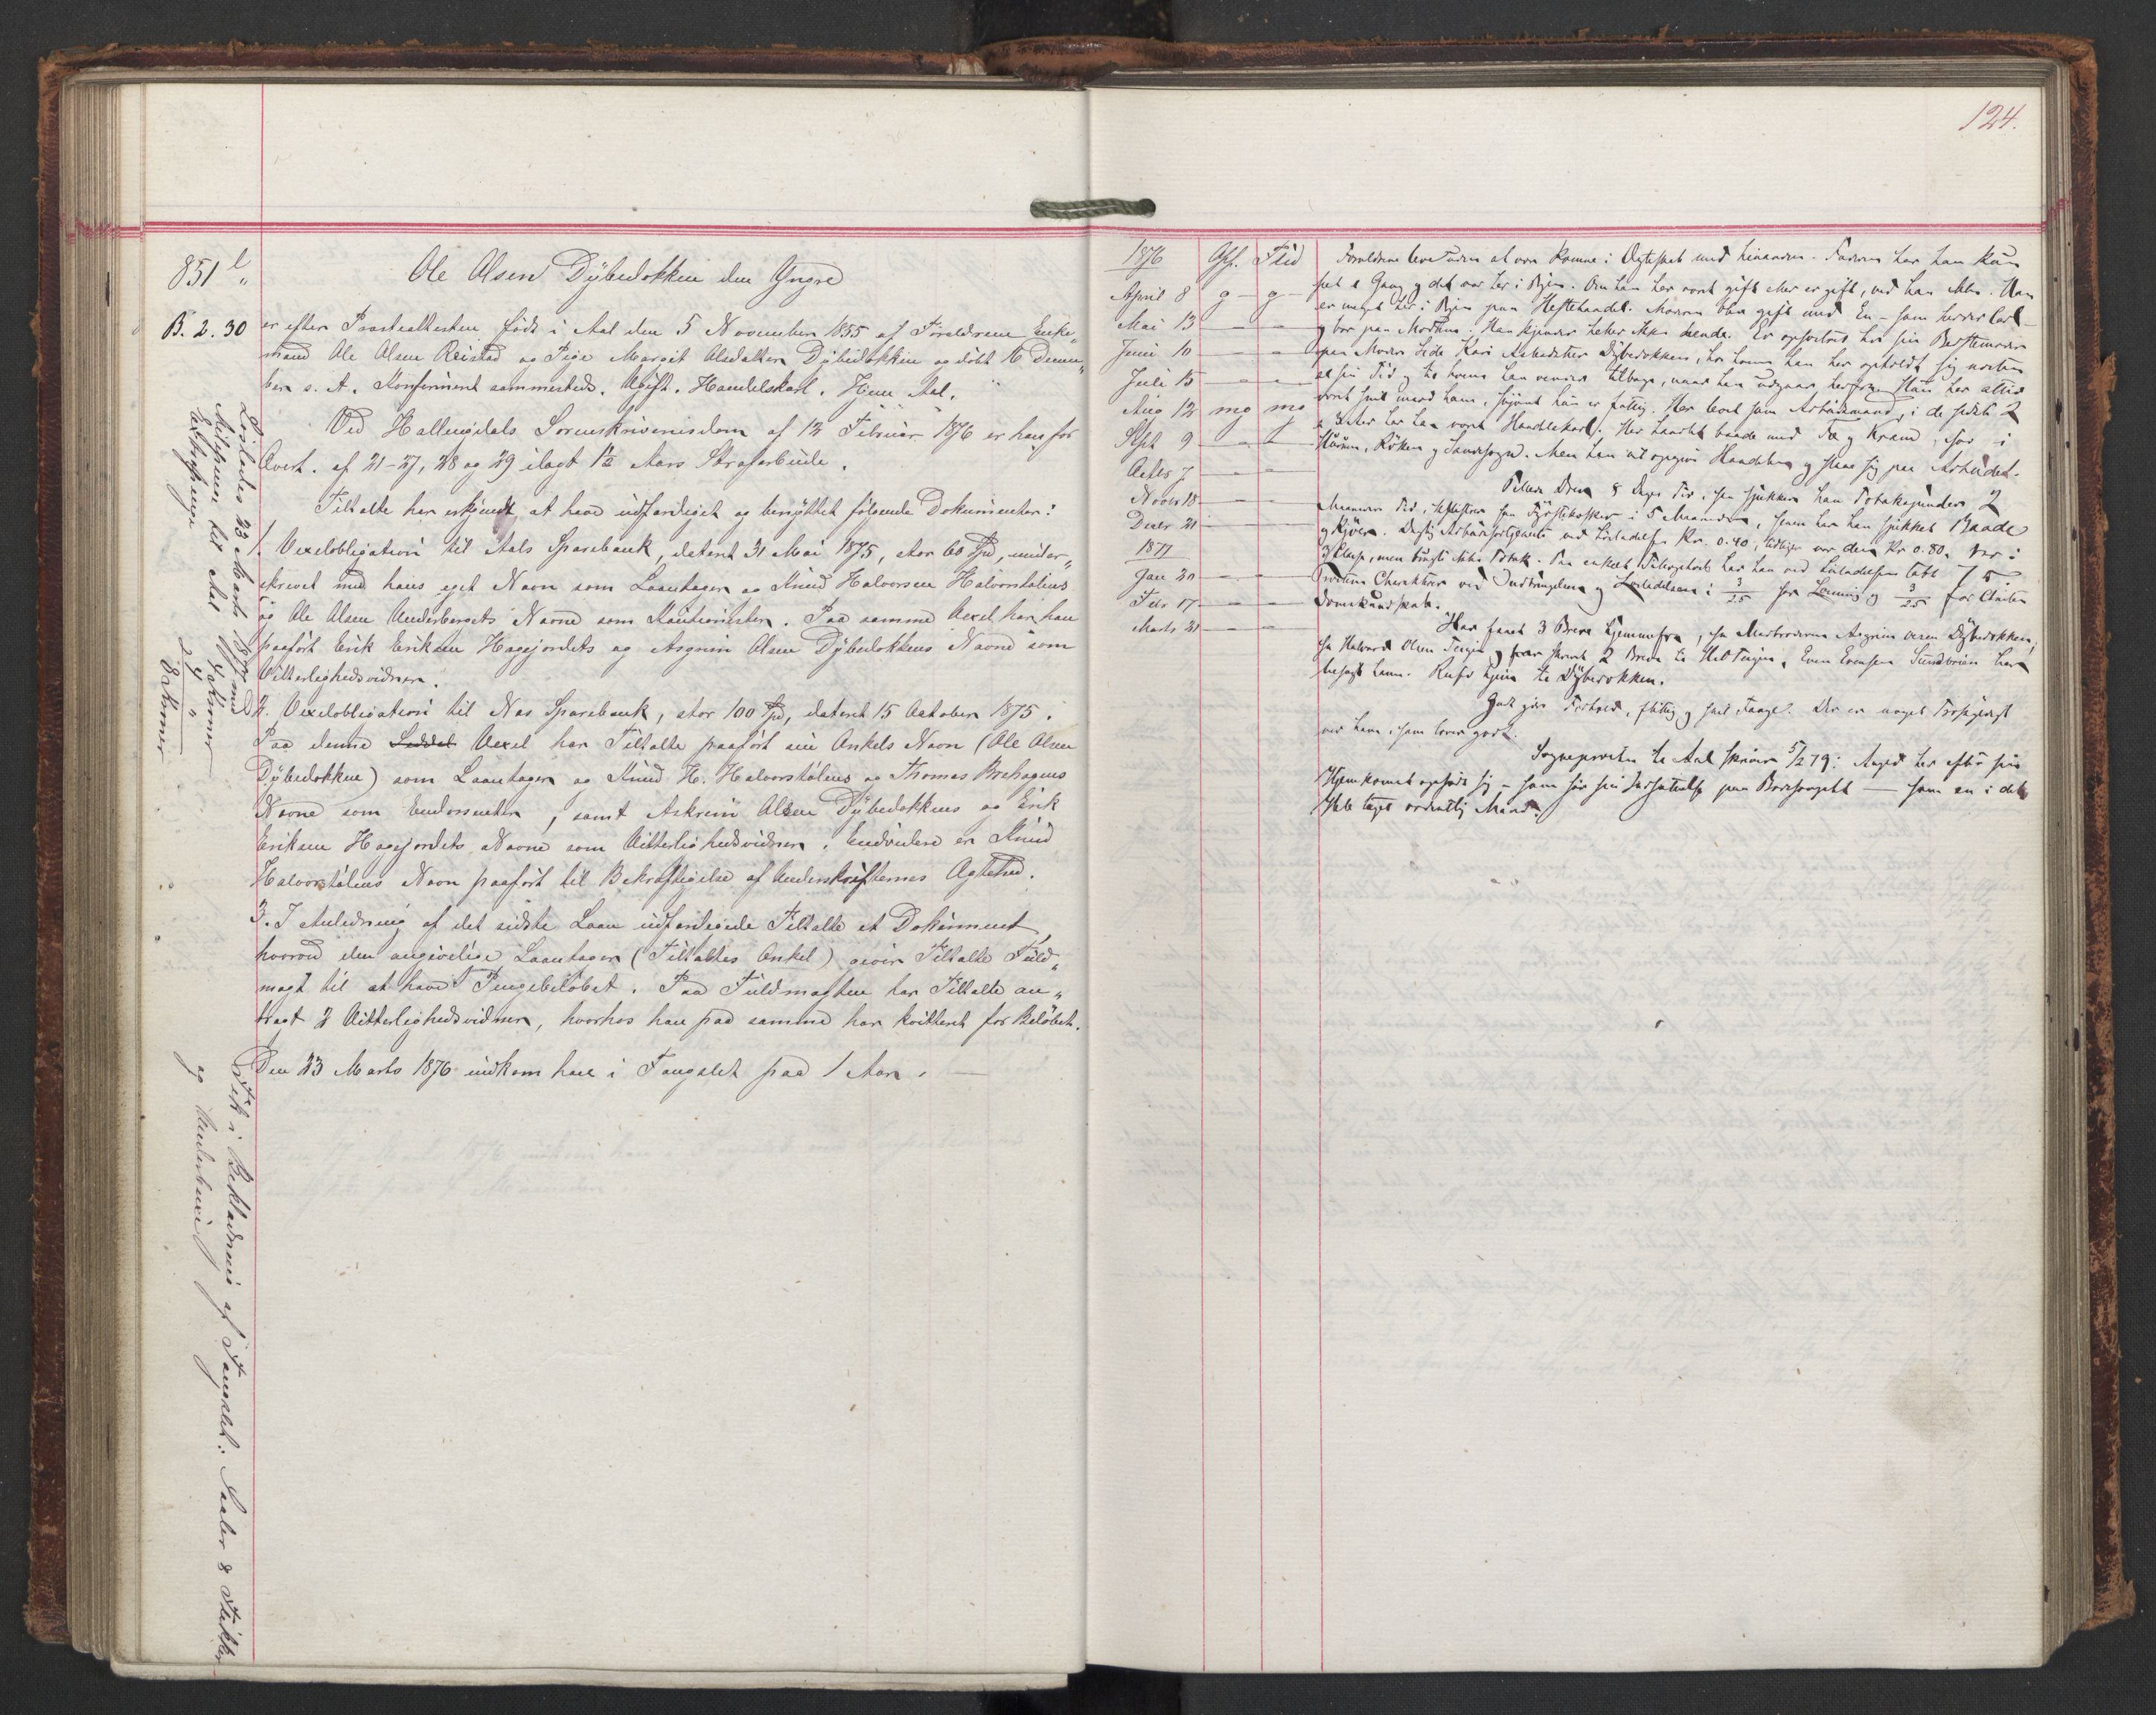 124.
851 b
B. 2. 30
Ole Olsen Dybedokken den Yngre
er efter Præsteattesten født i Aal den 5 November 1855 af Forældrene Enke„
mand Ole Olsen Reisted og Pige Margit Olsdatter Dybedokken og døbt 16 Decem„
ber s. A. Konfirmeret sammesteds. Ugift. Handelskarl. Hjem Aal.
Ved Hallingdals Sorenskriverisdom af 12 Februar 1876 er han for
Overt. af 21-27, 28 og 29 ilagt 1½ Aars Strafarbeide.
Tiltalte har erkjendt at have udfærdiget og benyttet følgende Dokumenter:
1. Vexelobligation til Aals Sparebank, dateret 31 Mai 1875, stor 60 Spd, under„
skrevet med hans eget Navn som Laantager og Knud Halvorsen Halvorstølens
og Ole Olsen Underbergets Navne som Kautionister. Paa samme Vexel har han
paaført Erik Eriksen Hagejordets og Asgrim Olsen Dybedokkens Navne som
Vitterlighedsvidner.
2. Vexelobligation til Nes Sparebank, stor 100 Spd, dateret 15 October 1875.
Paa denne Seddel Vexel har Tiltalte paaført sin Onkels Navn (Ole Olsen
Dybedokken) som Laantager og Knud H. Halvorstølens og Thomas Brehagens
Navne som Endossenter, samt Askrim Olsen Dybedokkens og Erik
Eriksen Hagejordets Navne som Vitterlighedsvidner. Endvidere er Knud
Halvorstølens Navn paaført til Bekræftigelse af Underskrifternes Ægthed.
3. I Anledning af det sidste Laan udfærdigede Tiltalte et Dokument,
hvorved den angivelige Laantager (Tiltaltes Onkel) giver Tiltalte Fuld„
magt til at hæve Pengebeløbet. Paa Fuldmagten har Tiltalte an„
bragt 2 Vitterlighedsvidner, hvorhos han paa samme har kvitteret for Beløbet.
Den 23 Marts 1876 indkom han i Fangslet paa 1 Aar.
Løslades 23 Marts 1877 med
Milepenge til Aal 4 Kroner
Extrapenge 4 „
8 Kroner
Fik i Beklædning af Fangslet: Saaler & Støvler
og Underbuxe
1876 Opf. Flid
April 8 g g
Mai 13 — —
Juni 10 — —
Juli 15 — —
Aug 12 mg mg
Sept 9 — —
Octbr 7 — —
Novbr 18 — —
Decbr 21 — —
1877
Jan 20 — —
Febr 17 — —
Marts 21 — —
Forældrene leve uden at være komne i Ægteskab med hinanden. Faderen har han kun
seet 1 Gang og det var her i Byen. Om han har været gift eller er gift, ved han ikke. Han
er meget her i Byen paa Hestehandel. Moderen blev gift med En
og bor paa Modum. Han kjender heller ikke hende. Er opfostret hos sin Bedstemoder
paa Moders Side Kari Dybedokken, hos hvem han har opholdt sig næsten
al sin Tid og til hvem han vender tilbage, naar han udgaar herfra. Hun har altid
været snil imod ham, skjønt hun er fattig. Har levet som Arbeidsmand, i de sidste 2
Aar har han været Handelskarl. Har handlet baade med Fæ og Kram, saa i
Hurum, Røken og Sandsogn. Men han vil opgive Handelen og slaae sig paa Arbeidet.
Maaneders Tid, Fyrstikesker i 5 Maaneder, siden har han hjukket Baade
og Kjøer. Daglig Arbeidsfortjeneste ved Løsladelsen Kr. 0.40, tidligere var den Kr 0.80.
Domkundskab.
Har faaet 3 Breve hjemmefra, fra Morbroderen Asgrim Olsen Dybedokken,
fra Halvord Olsen og har skrevet 2 Breve til Even Evensen Sundbreien har
besøgt ham. Reiser hjem til Dybedokken.
Godt godt Forhold, flittig og snil Fange. Der er noget Forsigtigt
ved ham, som lover godt.
Sognepresten til Aal skriver 5/2 79: Angjel. har efter sin
Hjemkomst opført sig - som før sin Indsættelse paa Bodsfængslet — som en i det
Hele taget ordentlig Mand.